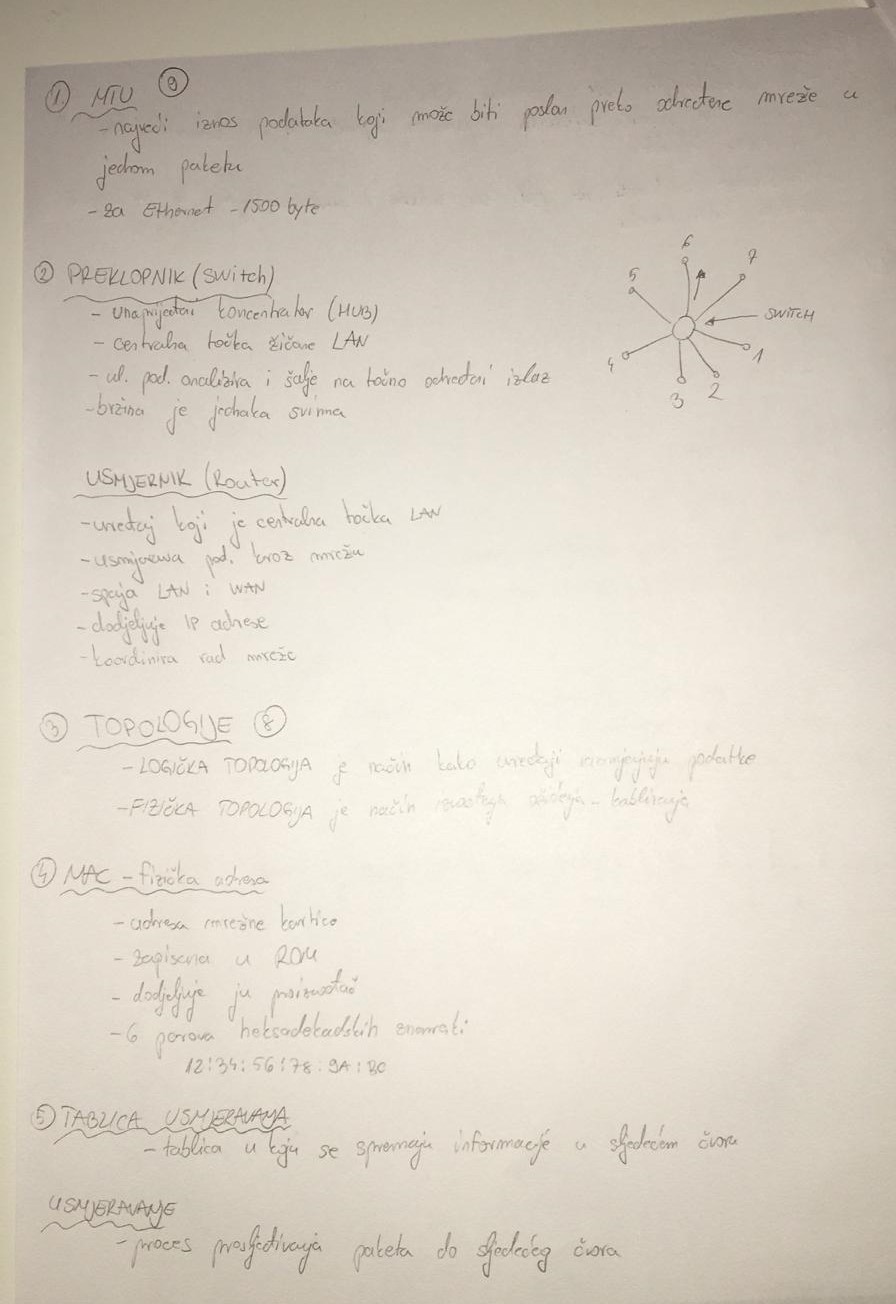 ① MTU ⑨
- najveći iznos podataka koji može biti poslan preko određene mreže u
jednom paketu
- za Ethernet - 1500 byte
② PREKLOPNIK (Switch)
- unaprijeđeni koncentrator (HUB)
- centralna točka žičane LAN
- ul. pod. analizira i šalje na točno određeni izlaz
- brzina je jednaka svima
6
7
5
SWITCH
4
1
3
2
USMJERNIK (Router)
- uređaj koji je centralna točka LAN
- usmjerava pod. kroz mrežu
- spaja LAN i WAN
- dodjeljuje IP adrese
- koordinira rad mreže
③ TOPOLOGIJE ⑧
- LOGIČKA TOPOLOGIJA je način kako uređaji razmjenjuju podatke
- FIZIČKA TOPOLOGIJA je način kabliranja
④ MAC - fizička adresa
- adresa mrežne kartice
- zapisana u ROM
- dodjeljuje ju proizvođač
- 6 parova heksadekadskih znamenki
12:34:56:78:9A:BC
⑤ TABLICA USMJERAVANJA
- tablica u koju se spremaju informacije u sljedećem čvoru
USMJERAVANJE
- proces prosljeđivanja paketa do sljedećeg čvora